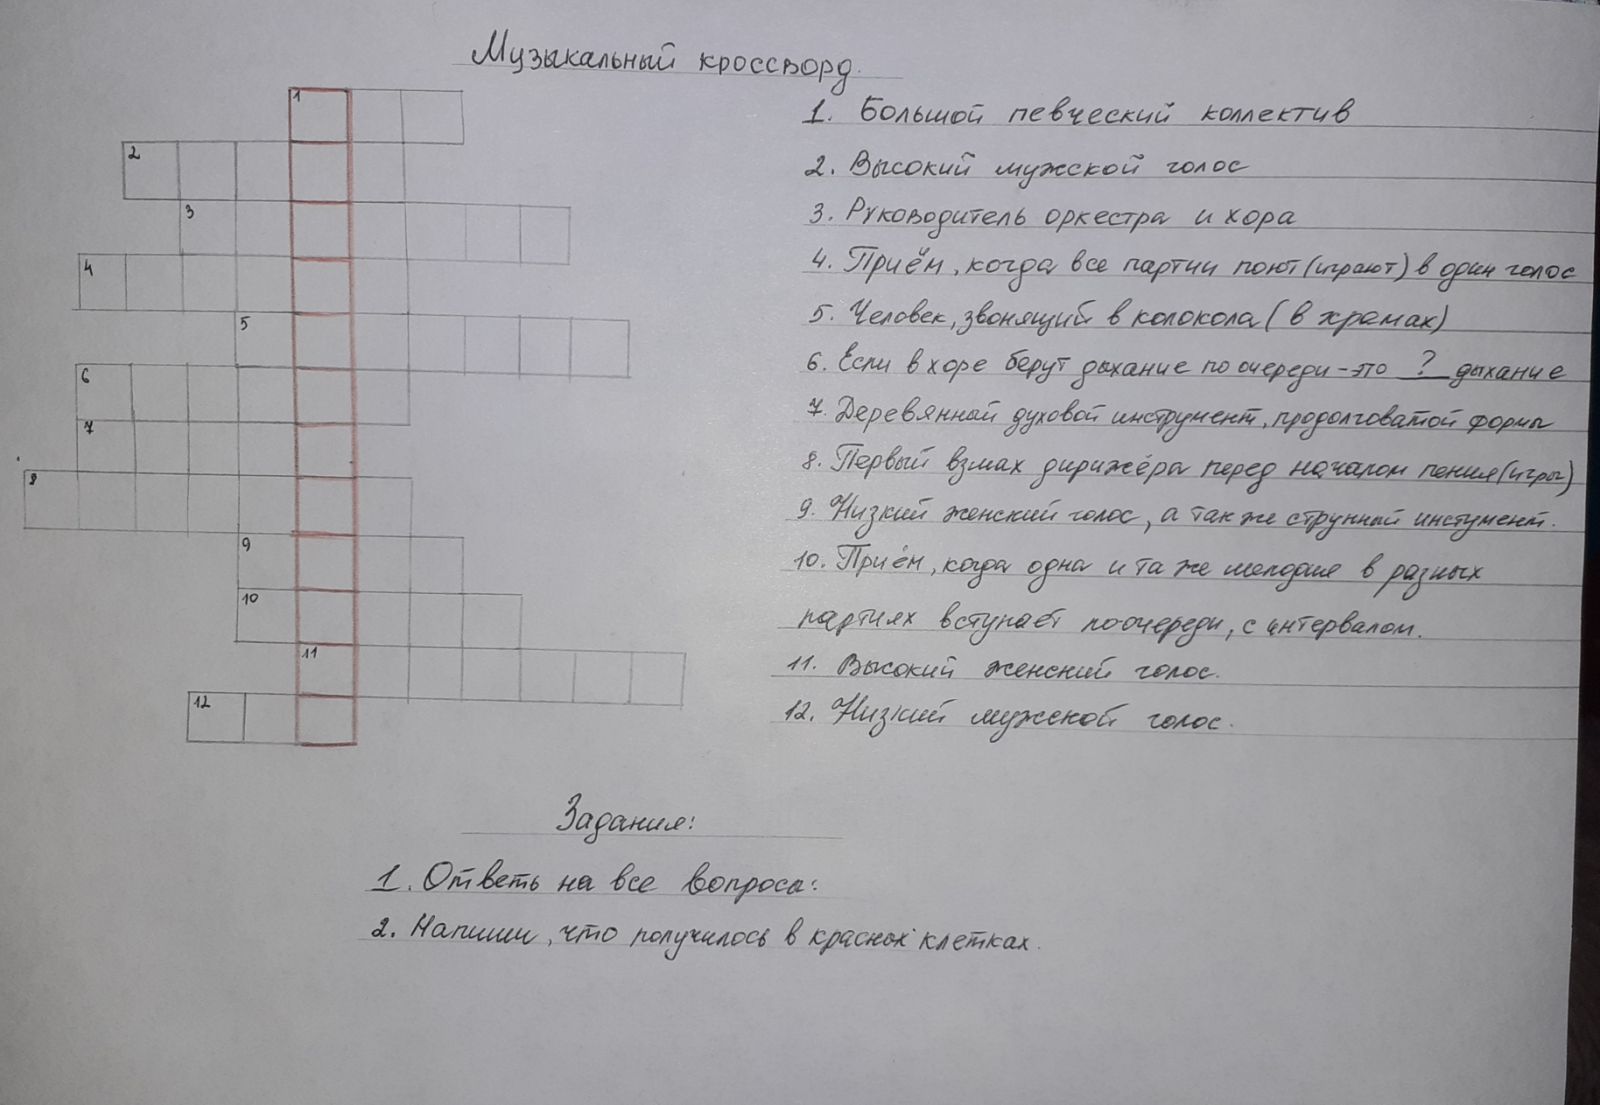 Музыкальный кроссворд.
1
2
3
4
5
6
7
8
9
10
11
12
1. Большой певческий коллектив
2. Высокий мужской голос
3. Руководитель оркестра и хора
4. Приём, когда все партии поют (играют) в один голос
5. Человек, звонящий в колокола (в храмах)
6. Если в хоре берут дыхание по очереди - это ? дыхание
7. Деревянный духовой инструмент, продолговатой формы
8. Первый взмах дирижёра перед началом пения (игры)
9. Низкий женский голос, а также струнный инстумент.
10. Приём, когда одна и та же мелодия в разных
партиях вступает по очереди, с интервалом.
11. Высокий женский голос.
12. Низкий мужской голос.
Задания:
1. Ответь на все вопросы:
2. Напиши, что получилось в красных клетках.